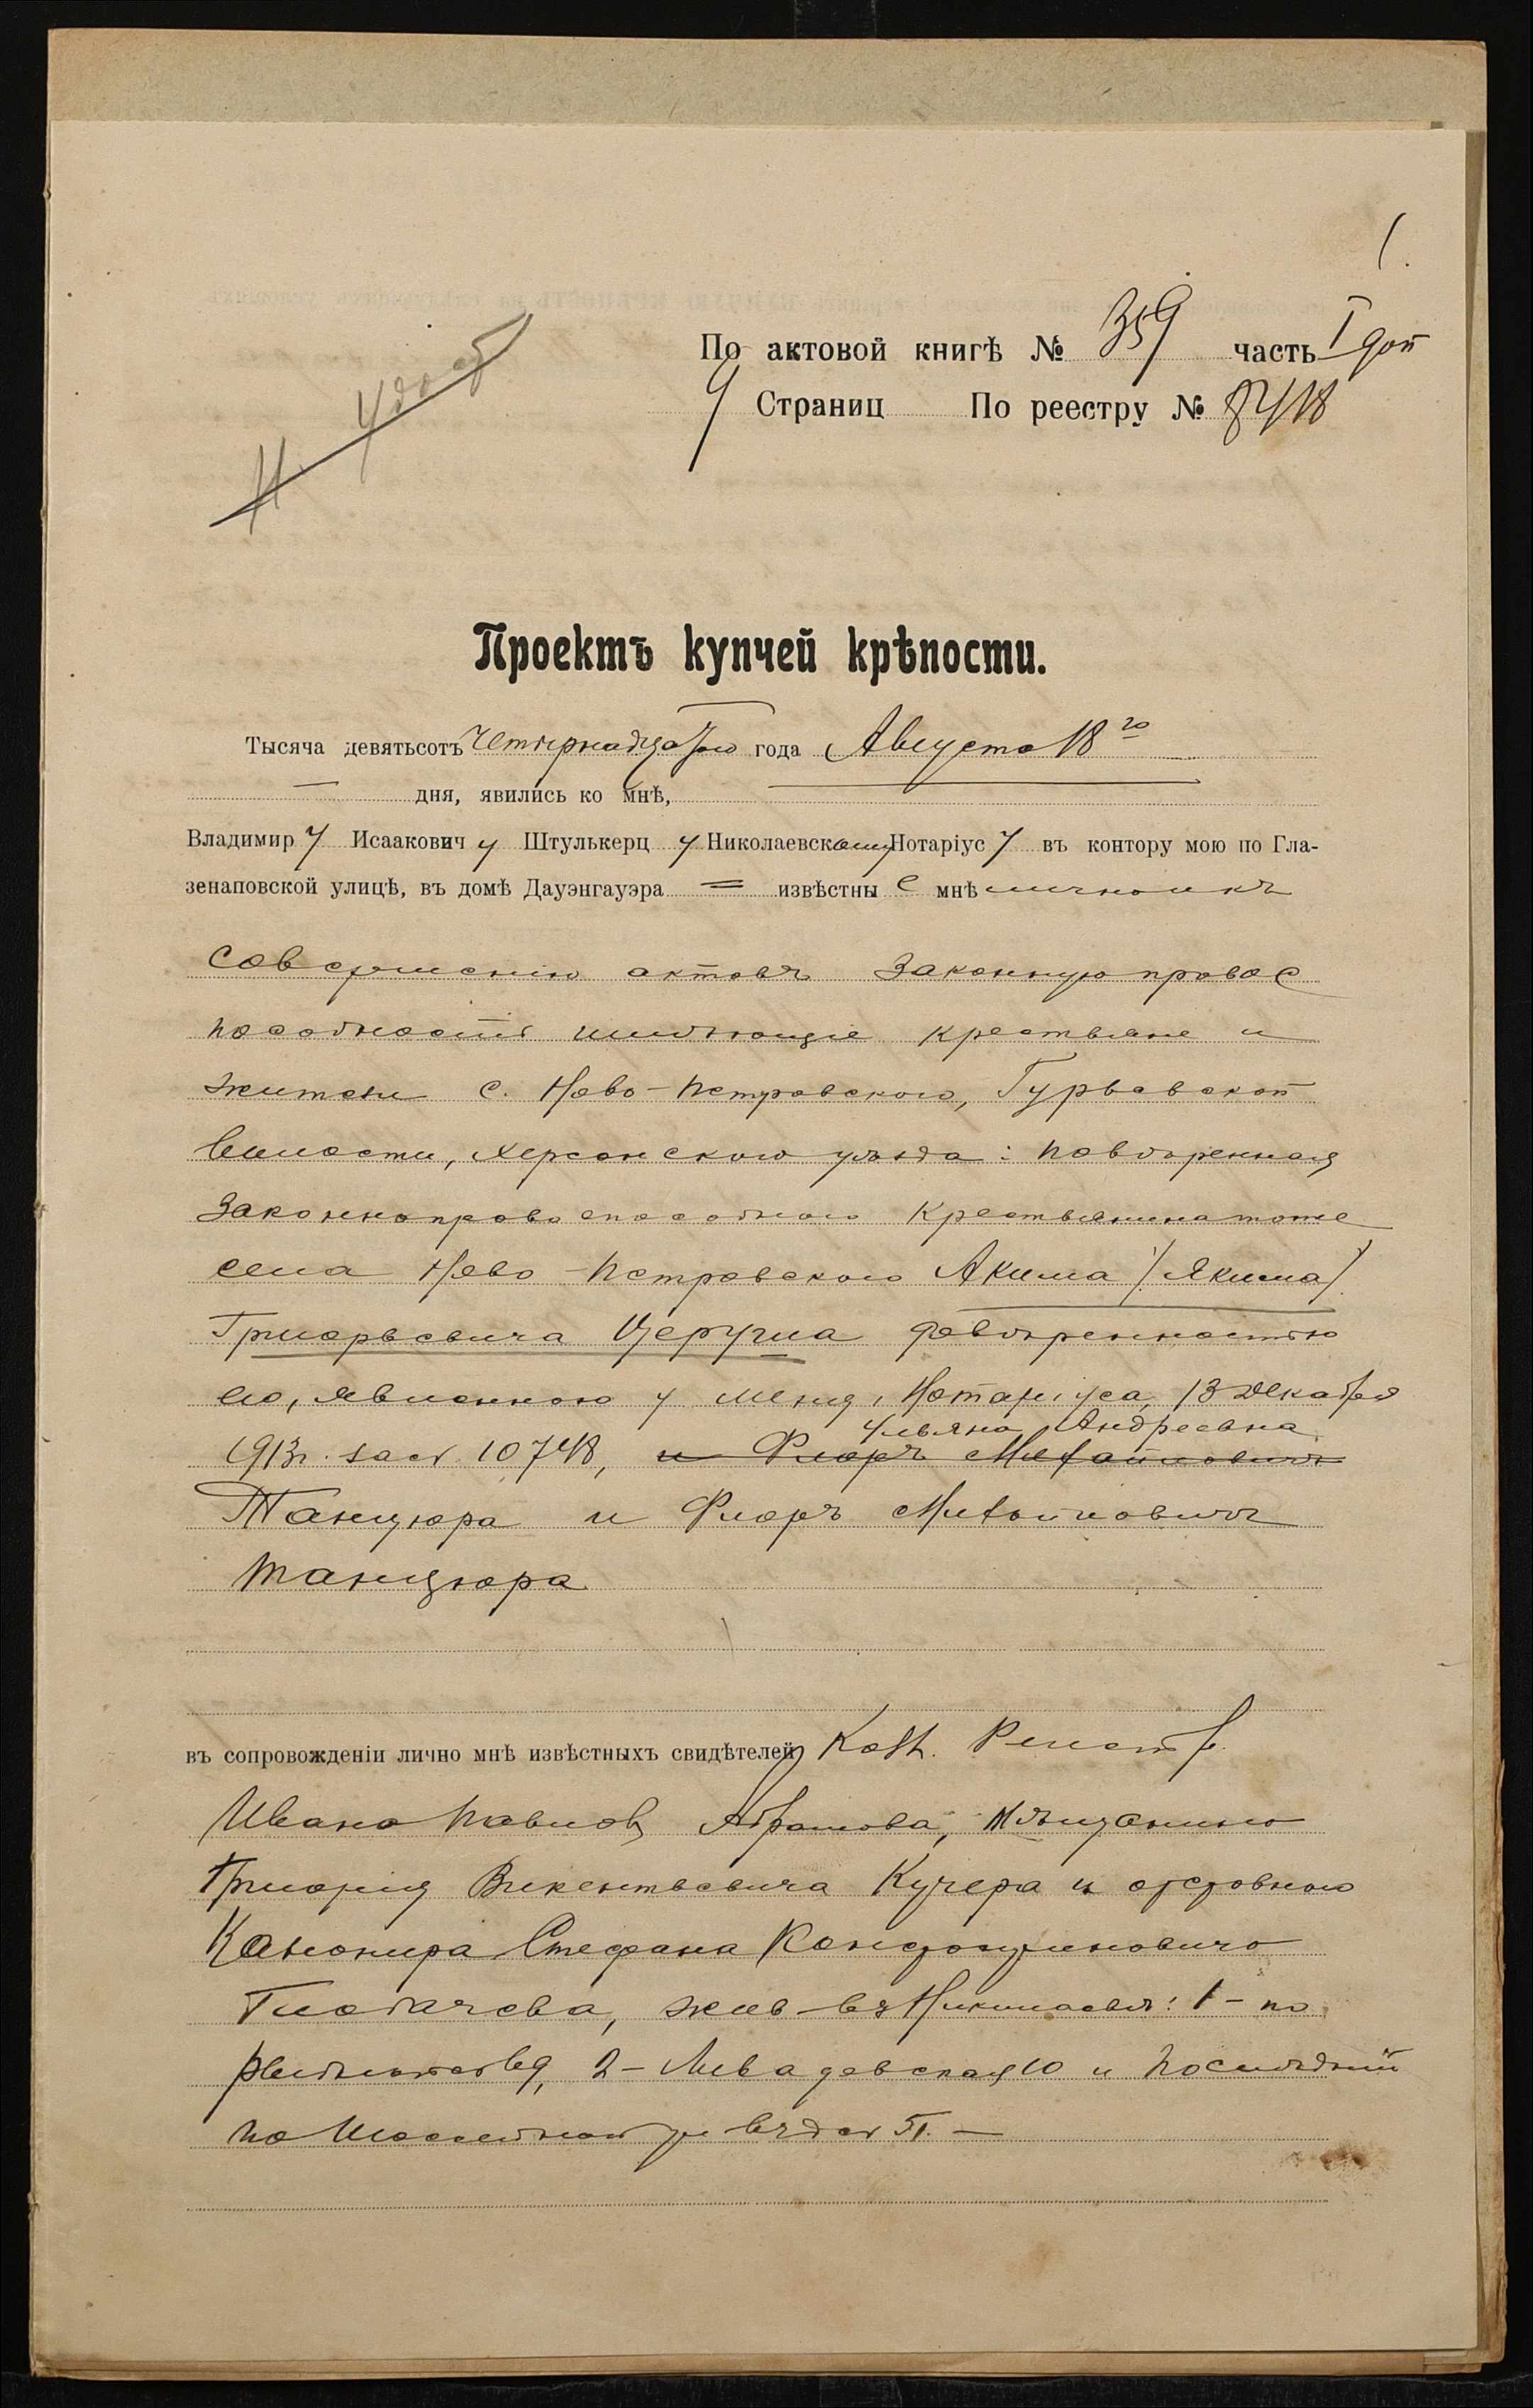 1.
По актовой книгѣ № 359 часть I доп
9 Страниц По реестру № 8418
Проектъ купчей крѣпости.
Тысяча девятьсотъ четырнадцатого года Августа 18го
дня, явились ко мнѣ,
Владимиру Исааковичу Штулькерцу Николаевскому Нотаріусу въ контору мою по Гла-
зенаповской улицѣ, въ домѣ Дауэнгауэра извѣстные мнѣ лично и къ
совершенію актовъ законную правос
пособность имѣющіе крестьяне и
жители с. Ново-Петровского, Гурьевской
волости, Херсонского уѣзда: повѣренная
законноправоспособного крестьянина тоже
села Ново-Петровского Акима /Якима/
Григорьевича Церулиа довѣренностью
его, явленною у меня, Нотаріуса, 13 Декабря
Ульяна Андреевна
1913г. 10748, и Флоръ Михайловичъ
Танцюра и Флоръ Михайловичъ
Танцюра
въ сопровожденіи лично мнѣ извѣстныхъ свидѣтелей,
Ивана Павлов Абрамова, мѣщанина
Григорія Викентьевича Кучера и отставного
Канонира Стефана Константиновича
Глобачева, жив въ Николаевѣ: 1 – по
2 – 10 и послѣдній
по въ д 51. –